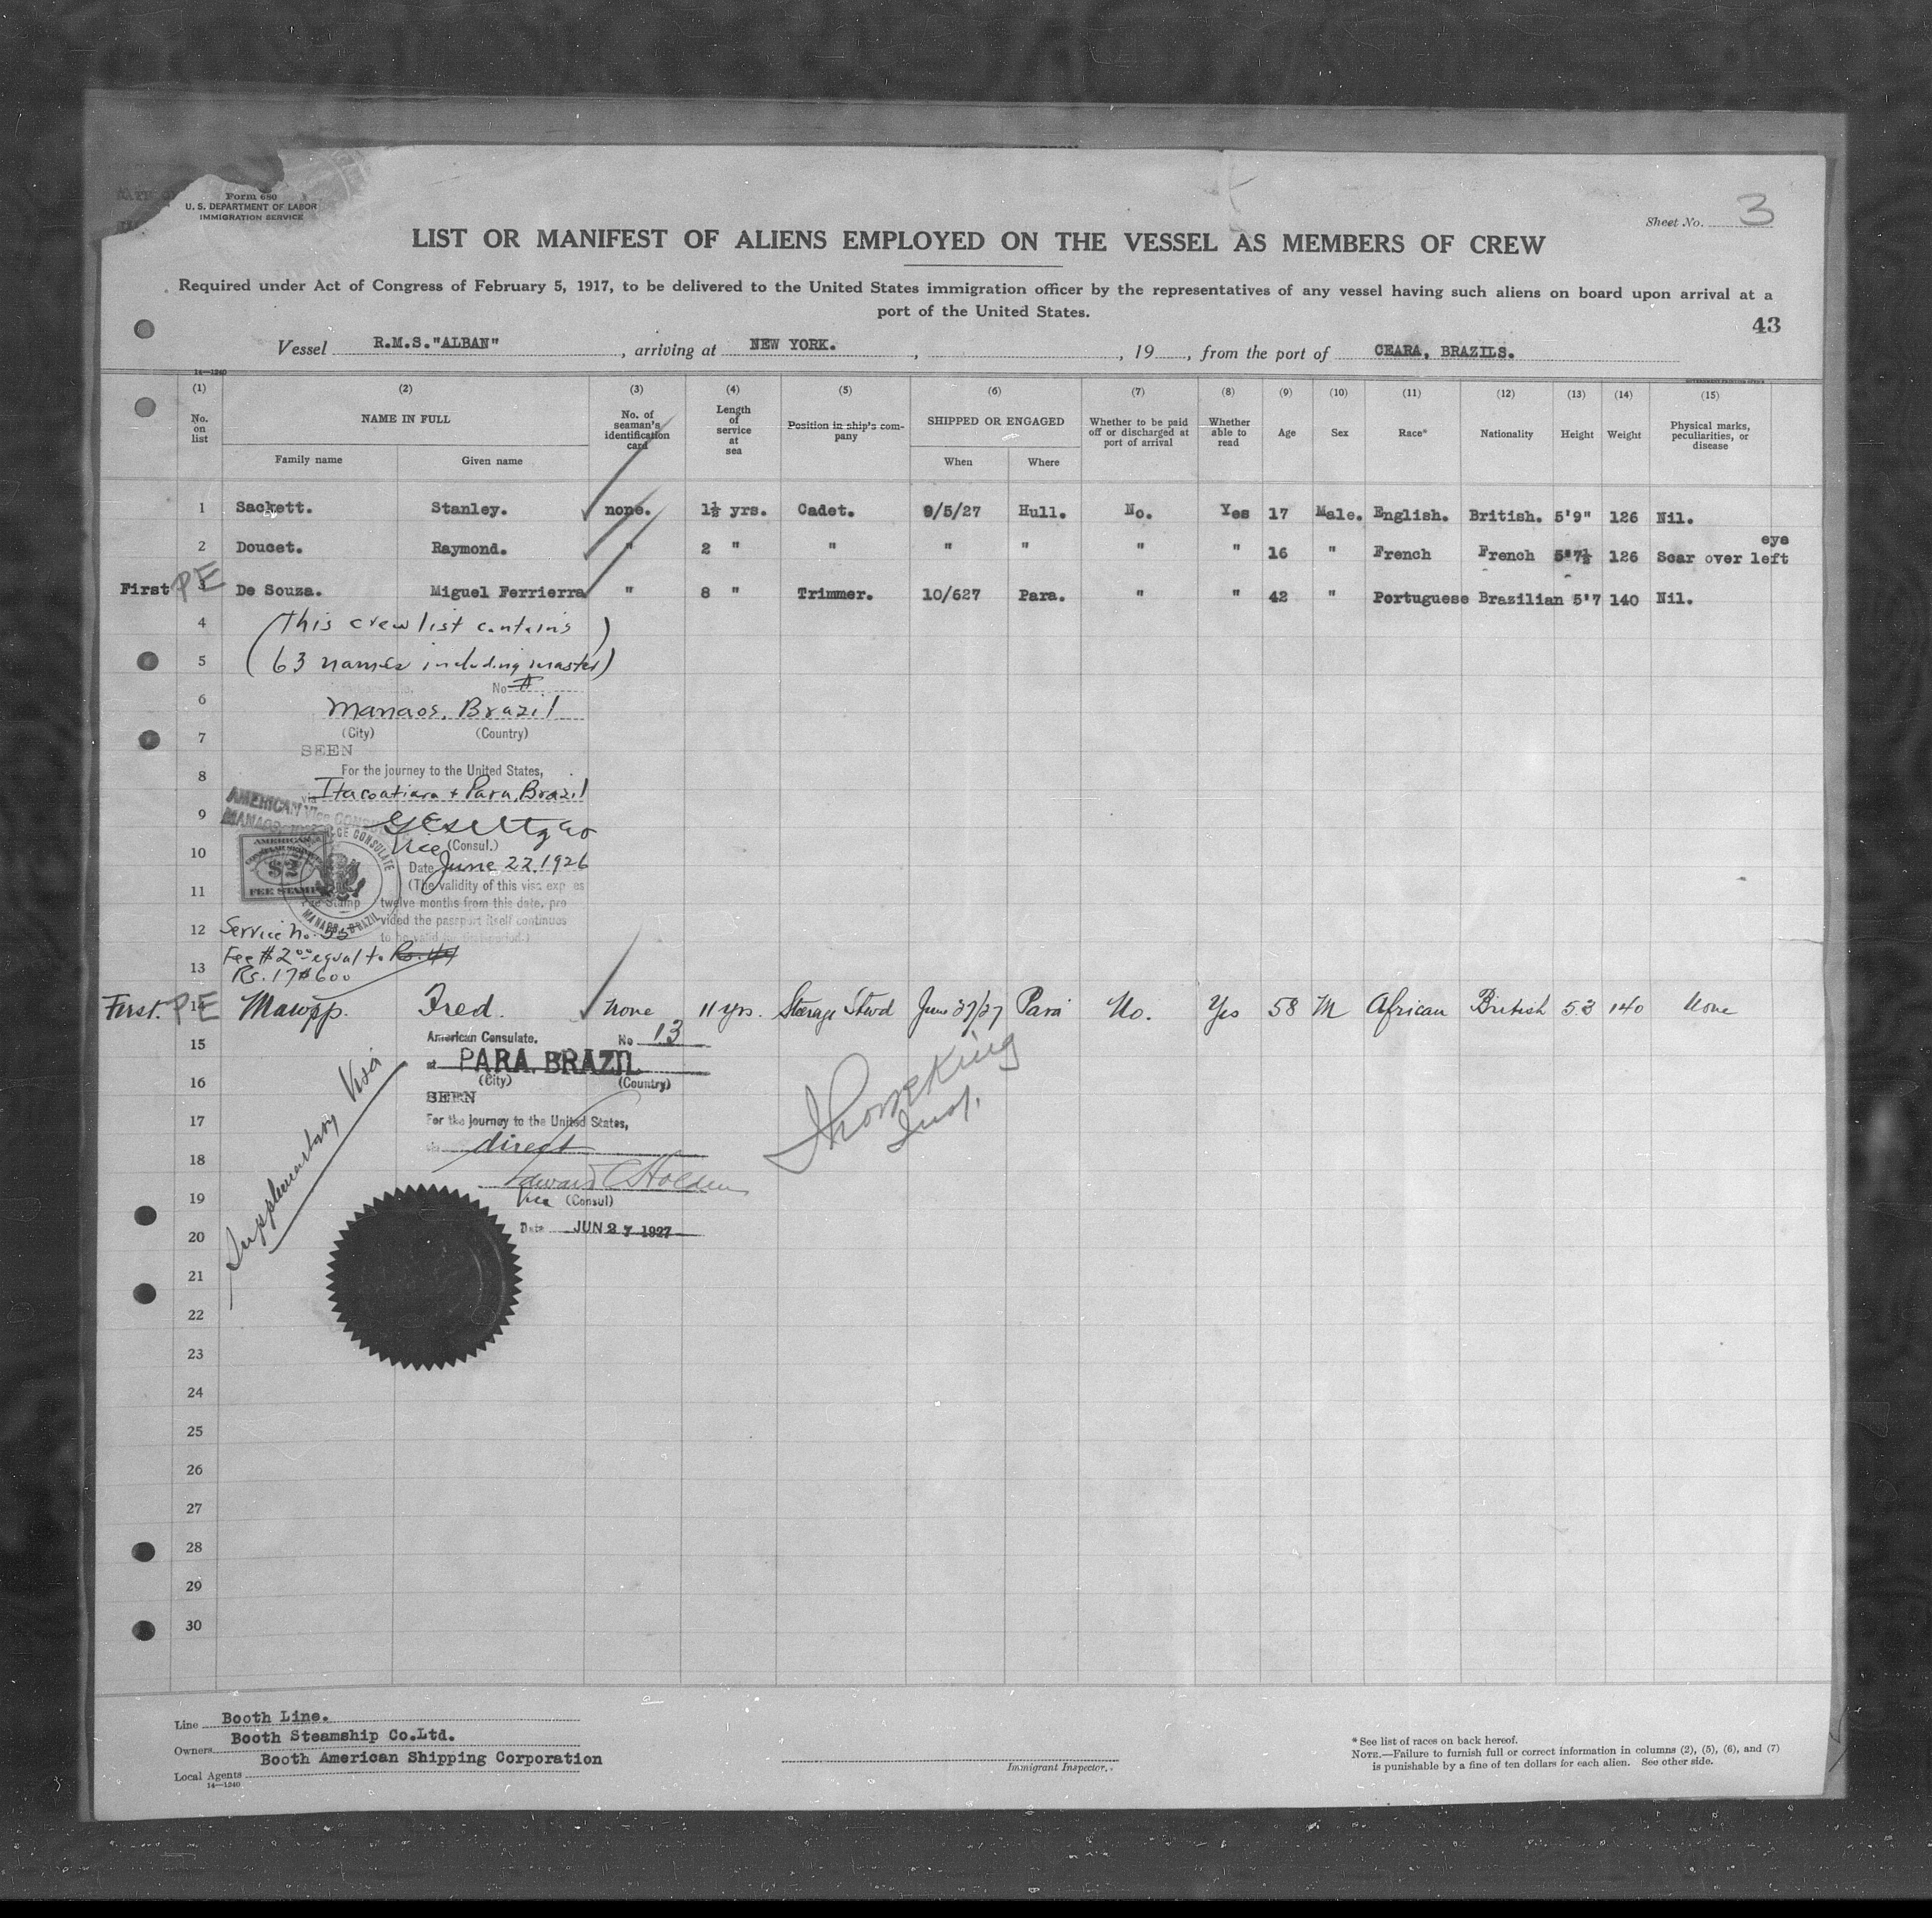 Form 680
U. S. DEPARTMENT OF LABOR
IMMIGRATION SERVICE
Sheet No. 3
LIST OR MANIFEST OF ALIENS EMPLOYED ON THE VESSEL AS MEMBERS OF CREW
Required under Act of Congress of February 5, 1917, to be delivered to the United States immigration officer by the representatives of any vessel having such aliens on board upon arrival at a
port of the United States.
43
Vessel R.M.S."ALBAN", arriving at NEW YORK., , 19 , from the port of CEARA, BRAZILS.
14—1240
(1) (2) (3) (4) (5) (6) (7) (8) (9) (10) (11) (12) (13) (14) (15)
No. on list NAME IN FULL No. of seaman's identification card Length of service at sea Position in ship's company SHIPPED OR ENGAGED Whether to be paid off or discharged at port of arrival Whether able to read Age Sex Race* Nationality Height Weight Physical marks, peculiarities, or disease
Family name Given name When Where
1 Sackett. Stanley. none. 1½ yrs. Cadet. 9/5/27 Hull. No. Yes 17 Male. English. British. 5'9" 126 Nil.
2 Doucet. Raymond. " 2 " " " " " " 16 " French French 5'7½ 126 Scar over left eye
First PE 3 De Souza. Miguel Ferrierra " 8 " Trimmer. 10/627 Para. " " 42 " Portuguese Brazilian 5'7 140 Nil.
4 (This crew list contains)
5 (63 names including master)
No.
6 Manaos, Brazil
(City) (Country)
7 SEEN
8 For the journey to the United States,
via Itacoatiara + Para, Brazil
AMERICAN Vice CONSUL
MANAOS
9
10 Vice (Consul.)
AMERICAN
$2
FEE STAMP
CONSULATE
MANAOS, BRAZIL
Date June 22, 1926
11 (The validity of this visa expires
Fee Stamp twelve months from this date, pro
vided the passport itself continues
to be valid for that period.)
12 Service No. 55
Fee $2.00 equal to
13 Rs. 17$600
First. PE 14 Mawpp. Fred. None 11 yrs. Steerage Stwd June 27/27 Para No. Yes 58 M African British 5.3 140 None
15 American Consulate. No 13
at PARA, BRAZIL
16 (City) (Country)
SEEN
17 For the journey to the United States,
via direct
18 Edward C Holden
19 Vice (Consul)
20 Date JUN 27 1927
Supplementary Visa
Insp.
21
22
23
24
25
26
27
28
29
30
Line Booth Line.
Owners Booth Steamship Co.Ltd.
Local Agents Booth American Shipping Corporation
14—1240
Immigrant Inspector.
* See list of races on back hereof.
NOTE.—Failure to furnish full or correct information in columns (2), (5), (6), and (7)
is punishable by a fine of ten dollars for each alien. See other side.